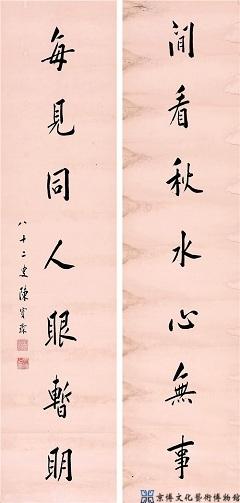 閒看秋水心無事
每見同人眼暫明
八十二叟陳寶琛
京博文化藝術博物館